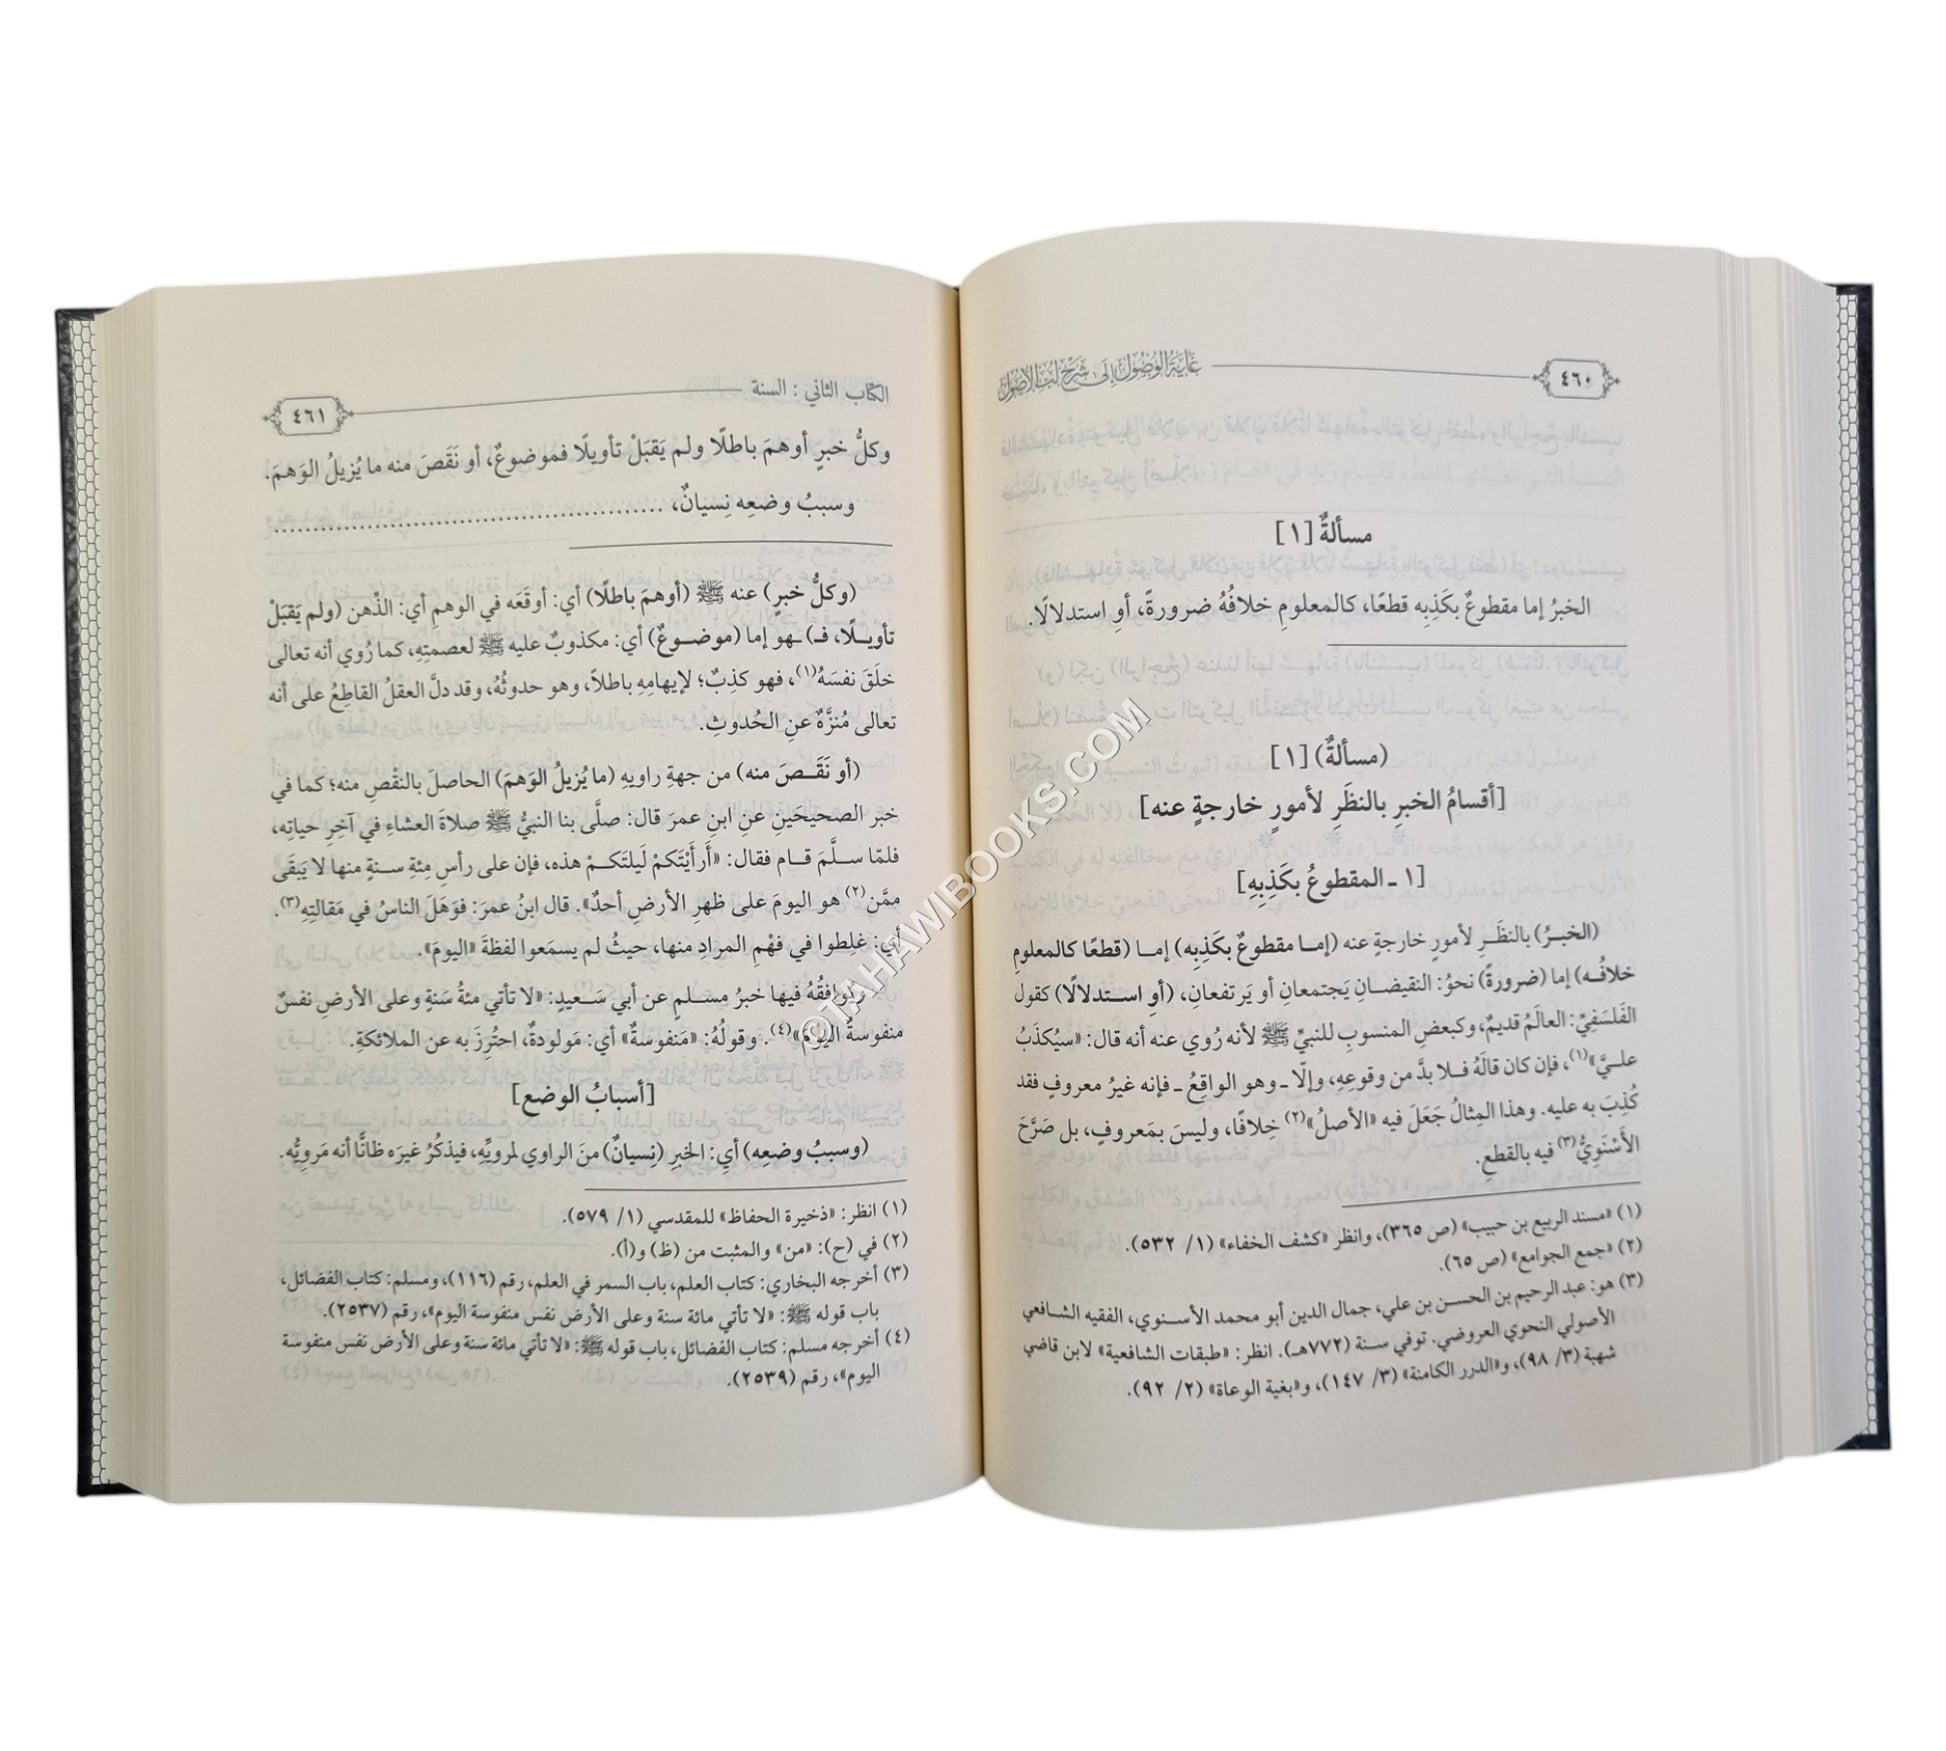 ٤٦٠
غاية الوصول إلى شرح لب الأصول
مسألةٌ [١]
الخبرُ إما مقطوعٌ بكَذِبِه قطعًا، كالمعلومِ خلافُهُ ضرورةً، أوِ استدلالًا.
(مسألةٌ) [١]
[أقسامُ الخبرِ بالنظَرِ لأمورٍ خارجةٍ عنه]
[١ ـ المقطوعُ بكَذِبِهِ]
(الخبـرُ) بالنظَـرِ لأمورٍ خارجةٍ عنه (إمـا مقطوعٌ بكَذِبِه) إمـا (قطعًا كالمعلومِ
خلافُـه) إما (ضرورةً) نحوُ: النقيضـانِ يَجتمعانِ أو يَرتفعانِ، (أوِ اسـتدلالًا) كقول
الفَلسَفيِّ: العالَمُ قديمٌ، وكبعضِ المنسوبِ للنبيِّ ﷺ لأنه رُوي عنه أنه قال: «سيُكذَبُ
علـيَّ»(١)، فإن كان قالَهُ فـلا بدَّ من وقوعِهِ، وإلّا ـ وهو الواقِعُ ـ فإنه غيرُ معروفٍ فقد
كُذِبَ به عليه. وهذا المِثالُ جَعَلَ فيه «الأصلُ»(٢) خِلافًا، وليسَ بمَعروفٍ، بل صَرَّحَ
الأَسْنَوِيُّ(٣) فيه بالقطعِ.
(١) «مسند الربيع بن حبيب» (ص ٣٦٥)، وانظر «كشف الخفاء» (١/ ٥٣٢).
(٢) «جمع الجوامع» (ص ٦٥).
(٣) هو: عبد الرحيم بن الحسـن بن علي، جمال الدين أبو محمد الأسـنوي، الفقيه الشـافعي
الأصولي النحوي العروضي. توفي سـنة (٧٧٢هـ). انظر: «طبقات الشافعية» لابن قاضي
شهبة (٣/ ٩٨)، و«الدرر الكامنة» (٣/ ١٤٧)، و«بغية الوعاة» (٢/ ٩٢).
الكتاب الثاني : السنة
٤٦١
وكلُّ خبرٍ أوهمَ باطلًا ولم يَقبَلْ تأويلًا فموضوعٌ، أو نَقَصَ منه ما يُزيلُ الوَهمَ.
وسببُ وضعِه نِسيانٌ، ................................................
(وكلُّ خبرٍ) عنه ﷺ (أوهمَ باطلًا) أي: أوقَعَه في الوهمِ أي: الذِّهن (ولم يَقبَلْ
تأويـلًا، فـ) ـهو إما (موضـوعٌ) أي: مكذوبٌ عليه ﷺ لعصمتِهِ، كما رُوي أنه تعالى
خلَقَ نفسَهُ(١)، فهو كذِبٌ؛ لإيهامِهِ باطلاً، وهو حدوثُهُ، وقد دلَّ العقلُ القاطِعُ على أنه
تعالى مُنزَّهٌ عنِ الحُدوثِ.
(أو نَقَـصَ منه) من جهةِ راويهِ (ما يُزيلُ الوَهمَ) الحاصلَ بالنقْصِ منه؛ كما في
خبر الصحيحَينِ عنِ ابنِ عمرَ قال: صلَّى بنا النبيُّ ﷺ صلاةَ العشاءِ في آخِرِ حياتِه،
فلمّا سـلَّمَ قـام فقال: «أَرأَيْتَكمْ لَيلتَكـمْ هذه، فإن على رأسِ مِئةِ سـنةٍ منها لا يَبقَى
ممَّن(٢) هو اليومَ على ظهرِ الأرضِ أحدٌ». قال ابنُ عمرَ: فوَهَلَ الناسُ في مَقالتِهِ(٣).
أي: غلِطوا في فهْمِ المرادِ منها، حيثُ لم يسمَعوا لفظةَ «اليومَ».
ويُوافقُهُ فيها خبرُ مسـلمٍ عن أبي سَـعيدٍ: «لا تأتي مئةُ سَنةٍ وعلى الأرضِ نفسٌ
منفوسةٌ اليومَ»(٤). وقولُهُ: «مَنفوسةٌ» أي: مَولودةٌ، احتُرِزَ به عن الملائكةِ.
[أسبابُ الوضع]
(وسببُ وضعِه) أي: الخبرِ (نِسيانٌ) منَ الراوي لمرويِّهِ، فيذكُرُ غيرَه ظانًّا أنه مَرويُّه.
(١) انظر: «ذخيرة الحفاظ» للمقدسي (١/ ٥٧٩).
(٢) في (ح): «من» والمثبت من (ظ) و(أ).
(٣) أخرجه البخاري: كتاب العلم، باب السمر في العلم، رقم (١١٦)، ومسلم: كتاب الفضائل،
باب قوله ﷺ: «لا تأتي مائة سنة وعلى الأرض نفس منفوسة اليوم»، رقم (٢٥٣٧).
(٤) أخرجه مسلم: كتاب الفضائل، باب قوله ﷺ: «لا تأتي مائة سنة وعلى الأرض نفس منفوسة
اليوم»، رقم (٢٥٣٩).
©TAHAWIBOOKS.COM